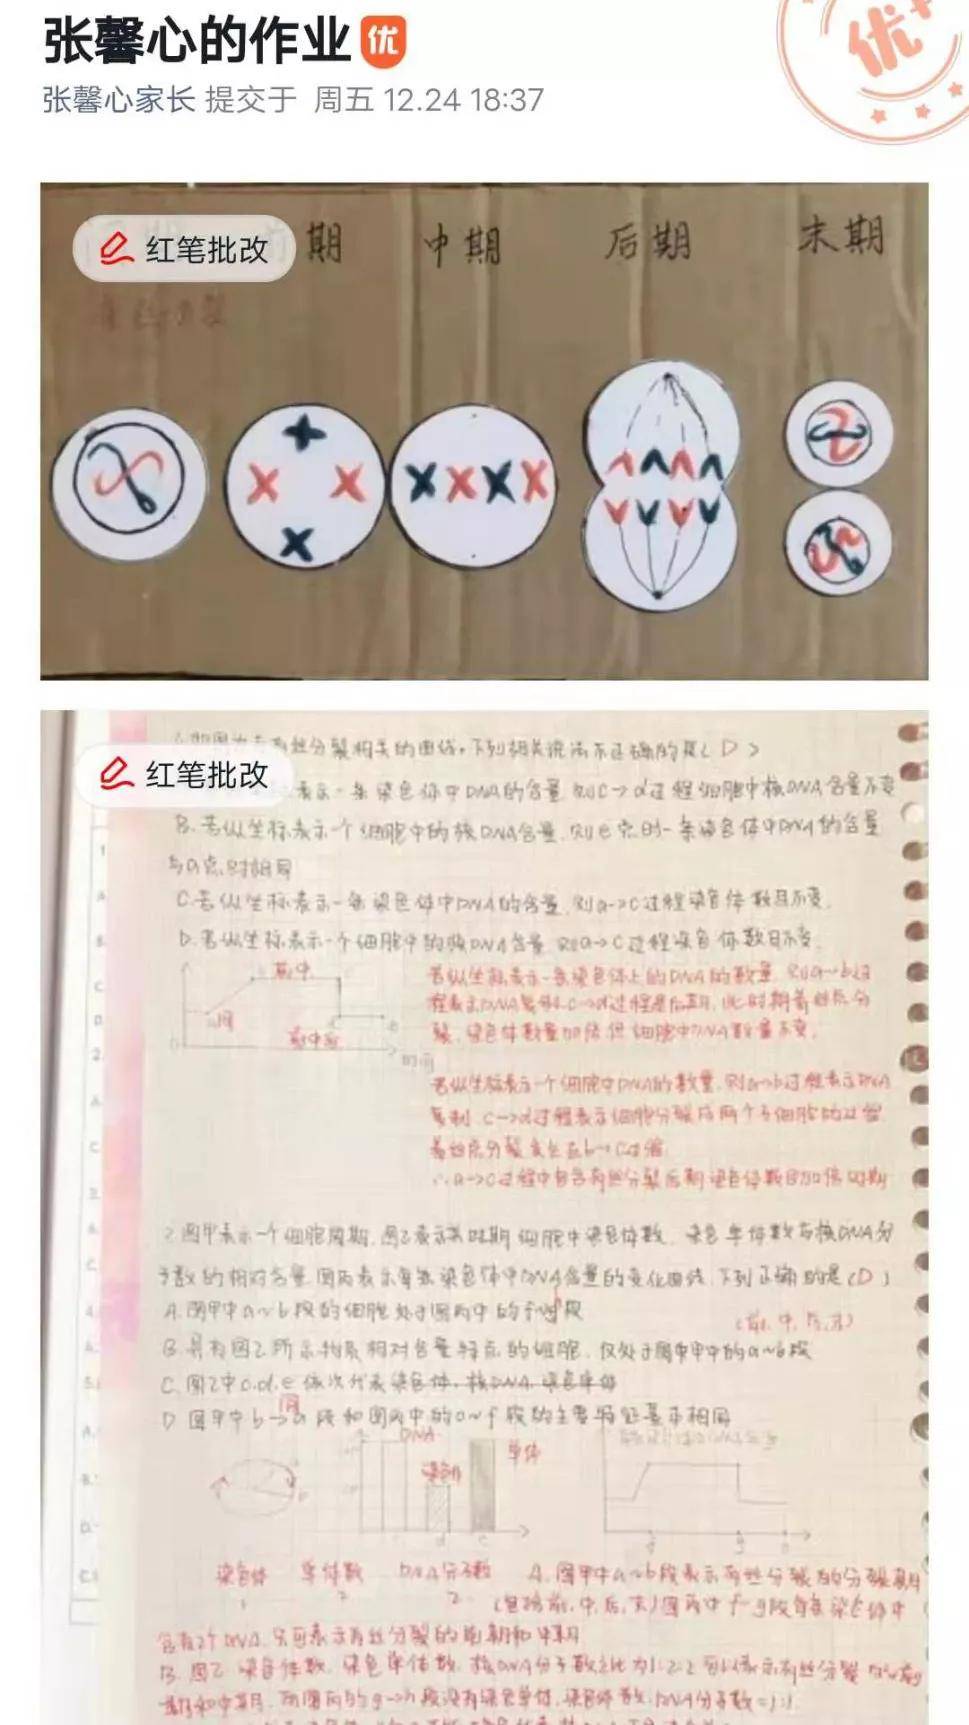 张馨心的作业 优
优+
张馨心家长 提交于 周五 12.24 18:37
红笔批改
期 中期 后期 末期
红笔批改
丝分裂相关的曲线，下列相关说法不正确的是（D）
表示一条染色体中DNA的含量，则c→d过程细胞中核DNA含量不变
B.若纵坐标表示一个细胞中的核DNA含量，则e点时一条染色体中DNA的含量
与a点时相同
C.若纵坐标表示一条染色体中DNA的含量，则a→c过程染色体数目不变.
D.若纵坐标表示一个细胞中的核DNA含量，则a→c过程染色体数目不变.
前中
若纵坐标表示一条染色体上的DNA的数量，则a→b过
程表示DNA复制，c→d过程是后期，此时期着丝点分
裂，染色体数量加倍但细胞中DNA数量不变.
间
时间
若纵坐标表示一个细胞中DNA的数量，则a→b过程表示DNA
复制，c→d过程表示细胞分裂成两个子细胞的过程
着丝点分裂发生在b→c过程
∴a→c过程中包含有丝分裂后期染色体数目加倍时期
2.图甲表示一个细胞周期，图乙表示某时期细胞中染色体数、染色单体数与核DNA分
子数的相对含量，图丙表示每条染色体中DNA含量的变化曲线，下列正确的是（D）
A.图甲中a~b段的细胞处于图丙中的f~g段
（前、中、后、末）
B.具有图乙所示物质相对含量特点的细胞，仅处于图中甲中的a~b段
C.图乙中c.d.e依次代表染色体、核DNA、染色单体
间
D 图甲中b→a段和图丙中的o~f段的主要特征基本相同
DNA
染色体
单体
染色体 单体数 DNA分子数
1 2 2
A.图甲中a~b段表示有丝分裂的分裂期
（包括前.中.后.末）图丙中f~g段每条染色体中
含有2个DNA，只可表示有丝分裂的前期和中期
B.图乙染色体数、染色单体数、核DNA分子数之比为1:2:2可以表示有丝分裂
期和中期，而图丙的g→h段没有染色单体，染色体数:DNA分子数=1:1.